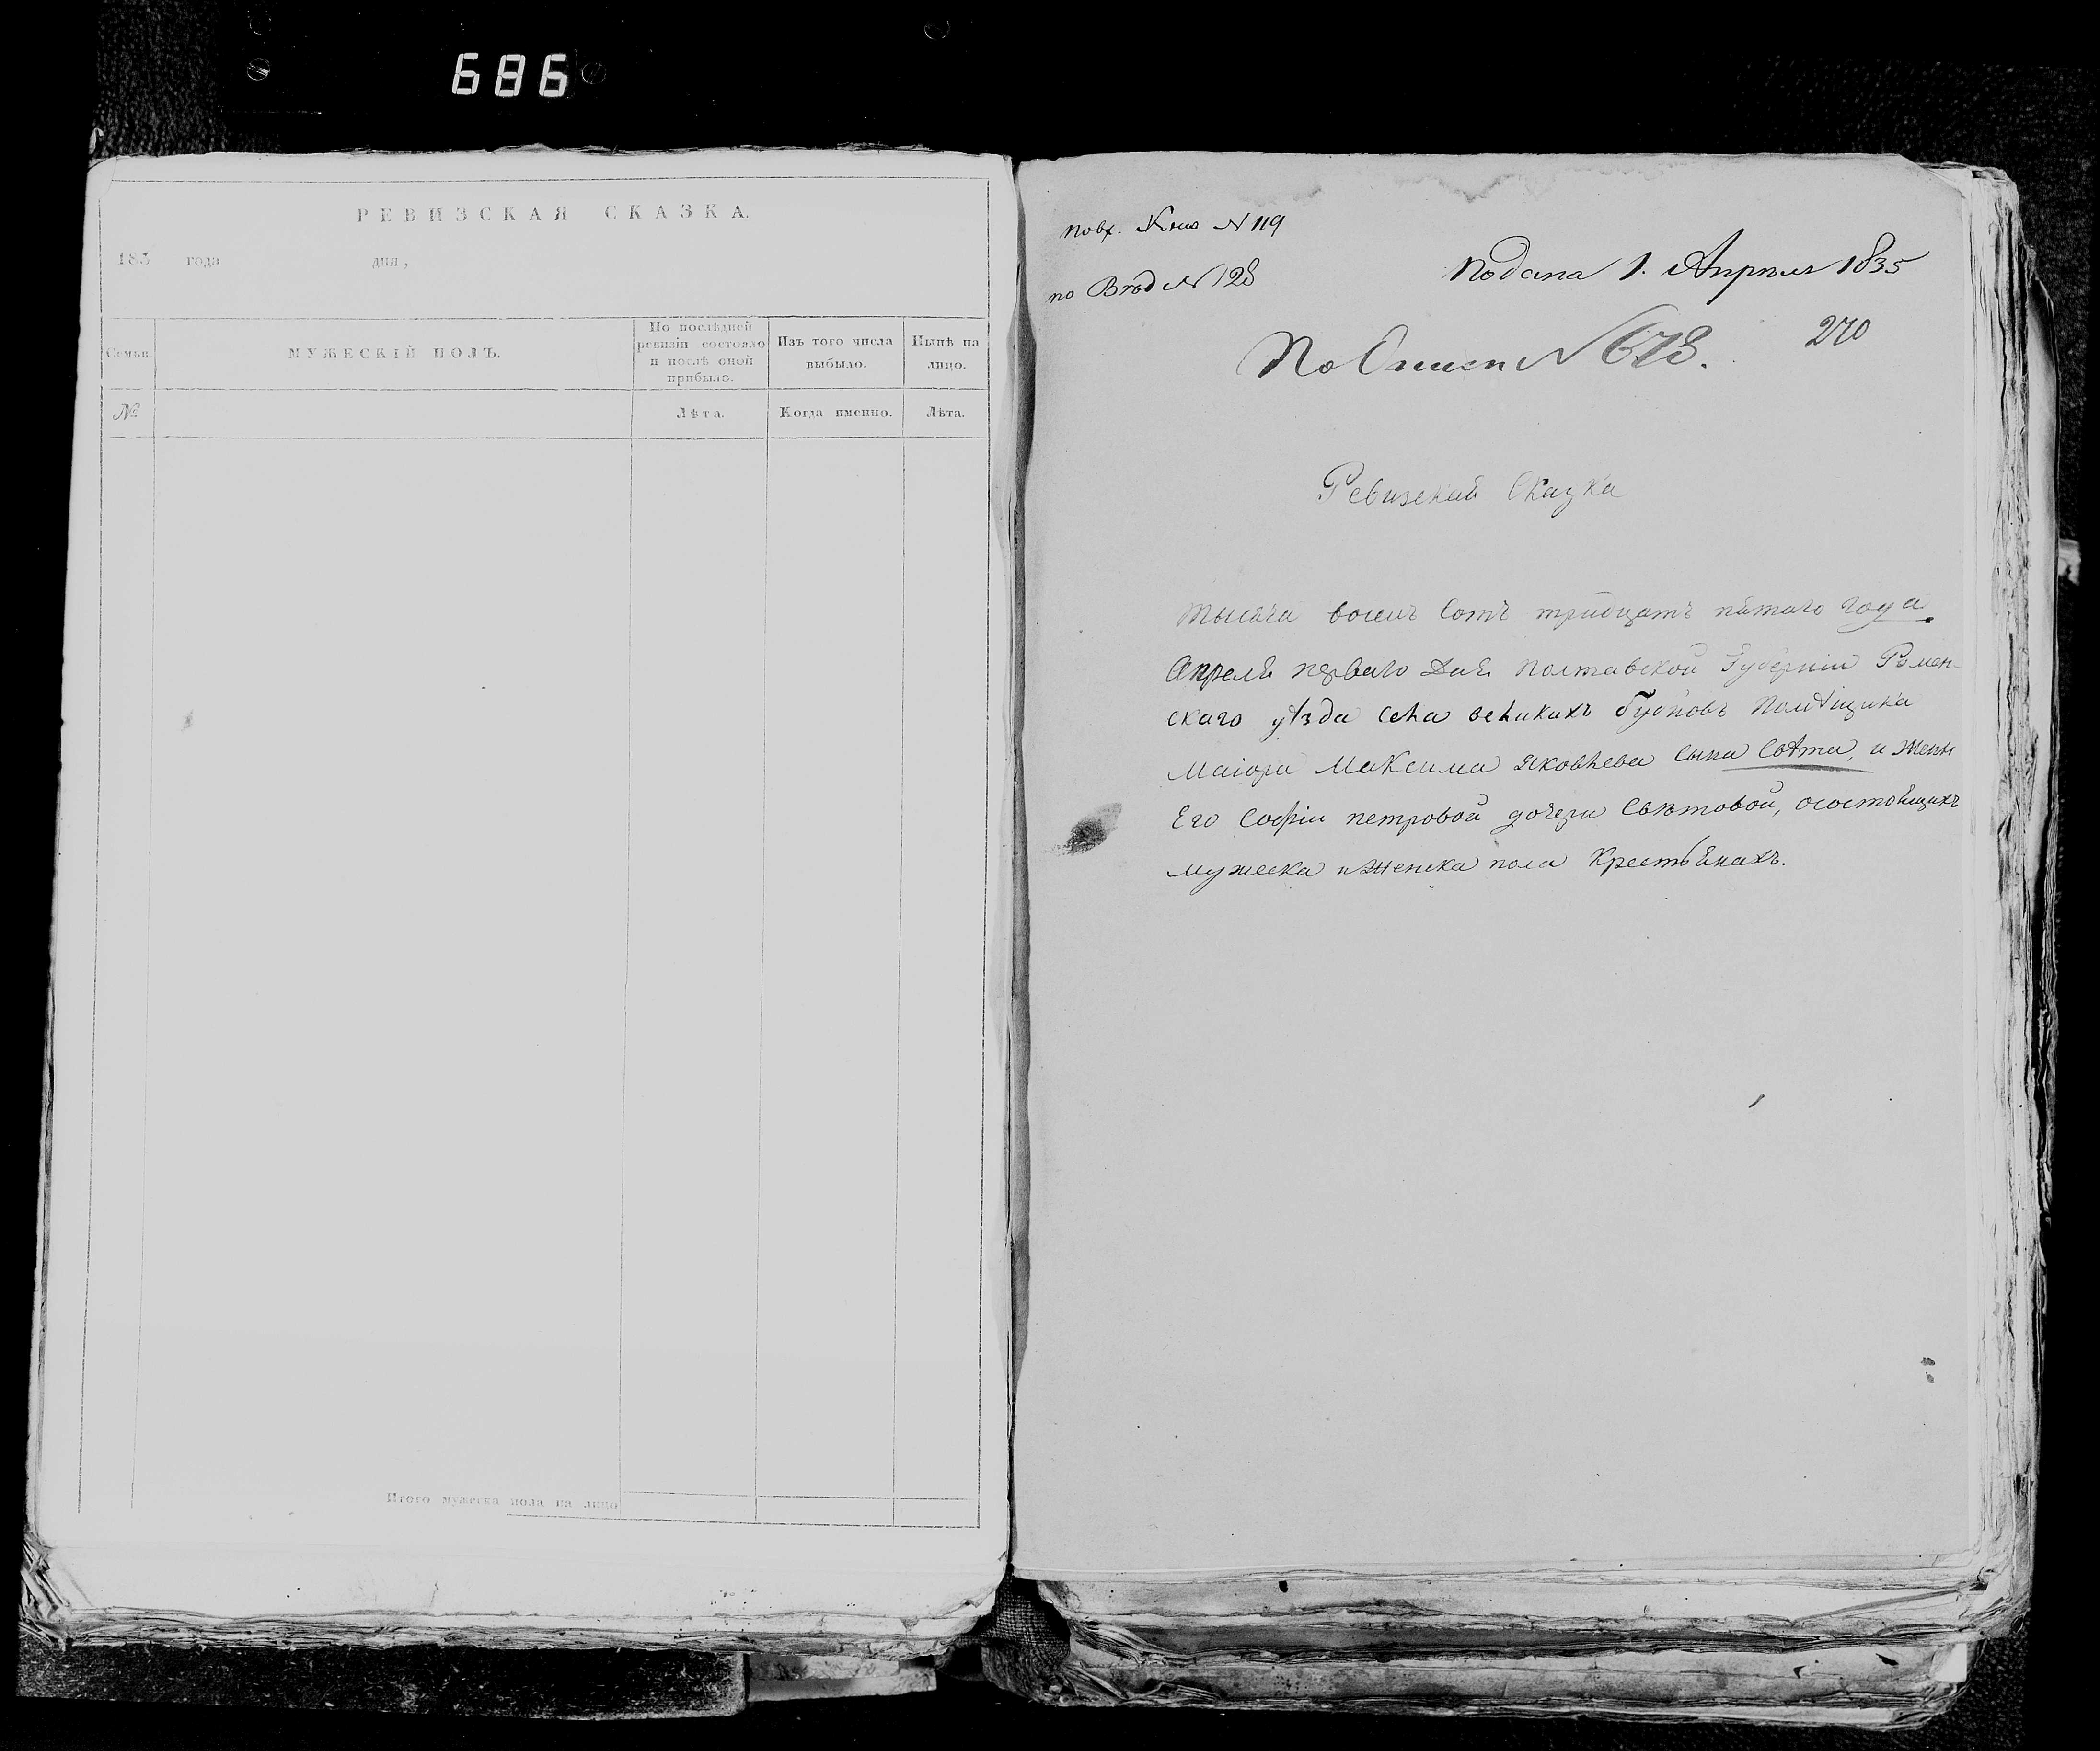 686
РЕВИЗСКАЯ СКАЗКА.
183 года дня,
Семьи. МУЖЕСКІЙ ПОЛЪ. По послѣдней ревизіи состояло и послѣ оной прибыло. Изъ того числа выбыло. Нынѣ на лицо.
№ Лѣта. Когда именно. Лѣта.
Итого мужеска пола на лицо
По вх. Книг № 119
по Вход № 128
Подана 1. Апрѣля 1835
270
По Описи № 673.
Ревизская Сказка
Тысяча восемь Сотъ тридцать пятаго года
Апреля перваго Дня Полтавской Губерніи Ромен-
скаго уѣзда Села великихъ бубновъ Помѣщика
Маіора Максима Яковлева Сына Свѣта, и жены
Его Софіи петровой дочери Свѣтовой, осостоящихъ
мужеска и женска пола Крестьянахъ.